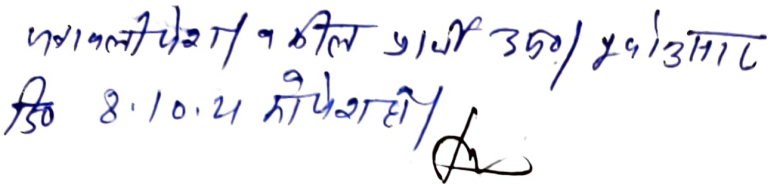 पत्रावली पेश। वकील प्रार्थी उप०। पूर्वानुसार
दि० 8.10.21 को पेश हो।